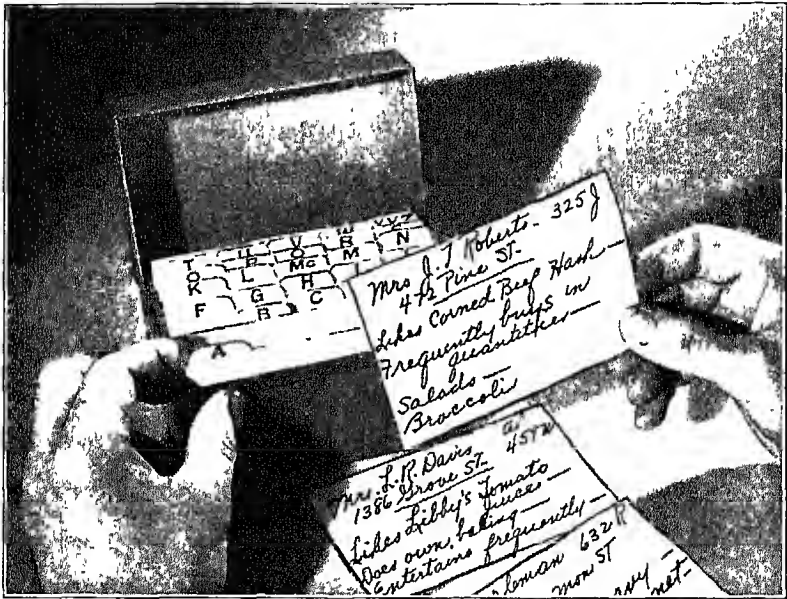 T U V W XYZ
O P Q R
K L Mc M N
F G H
B C
A
Mrs J. T. Roberts - 325 J
472 Pine ST.
Likes Corned Beef Hash —
Frequently buys in
quantities —
Salads —
Broccoli
Mrs. L. R. Davis
457 W
1386 Grove ST.
Likes Libby's Tomato
Juices —
Does own baking —
Entertains frequently —
632 R
ST